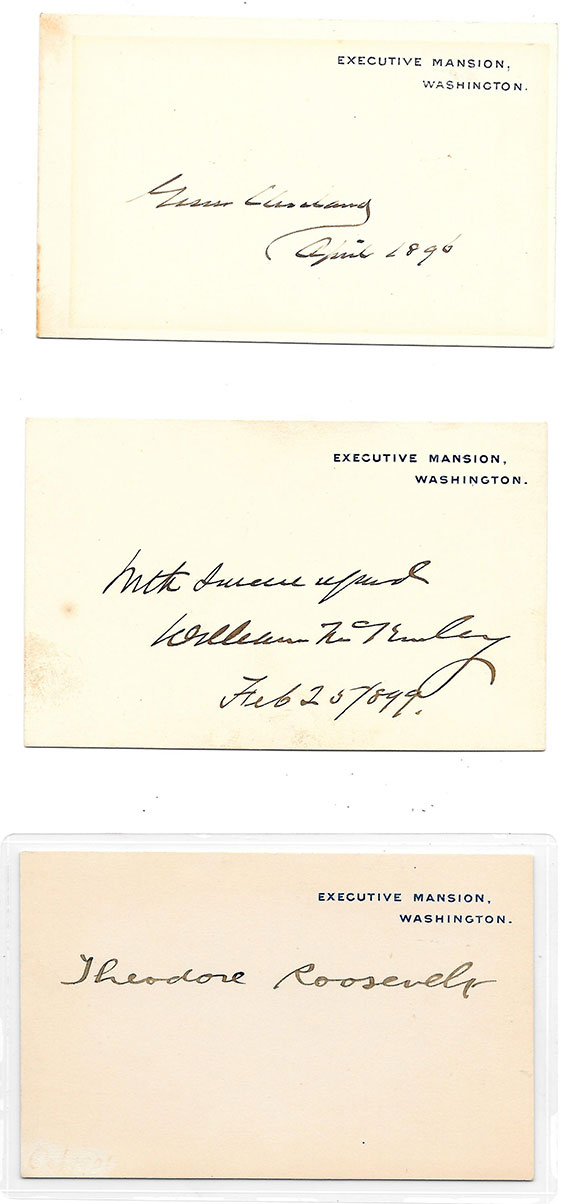 EXECUTIVE MANSION,
WASHINGTON.
Grover Cleveland
April 1896
EXECUTIVE MANSION,
WASHINGTON.
With sincere regard
William McKinley
Feb 25/899.
EXECUTIVE MANSION,
WASHINGTON.
Theodore Roosevelt